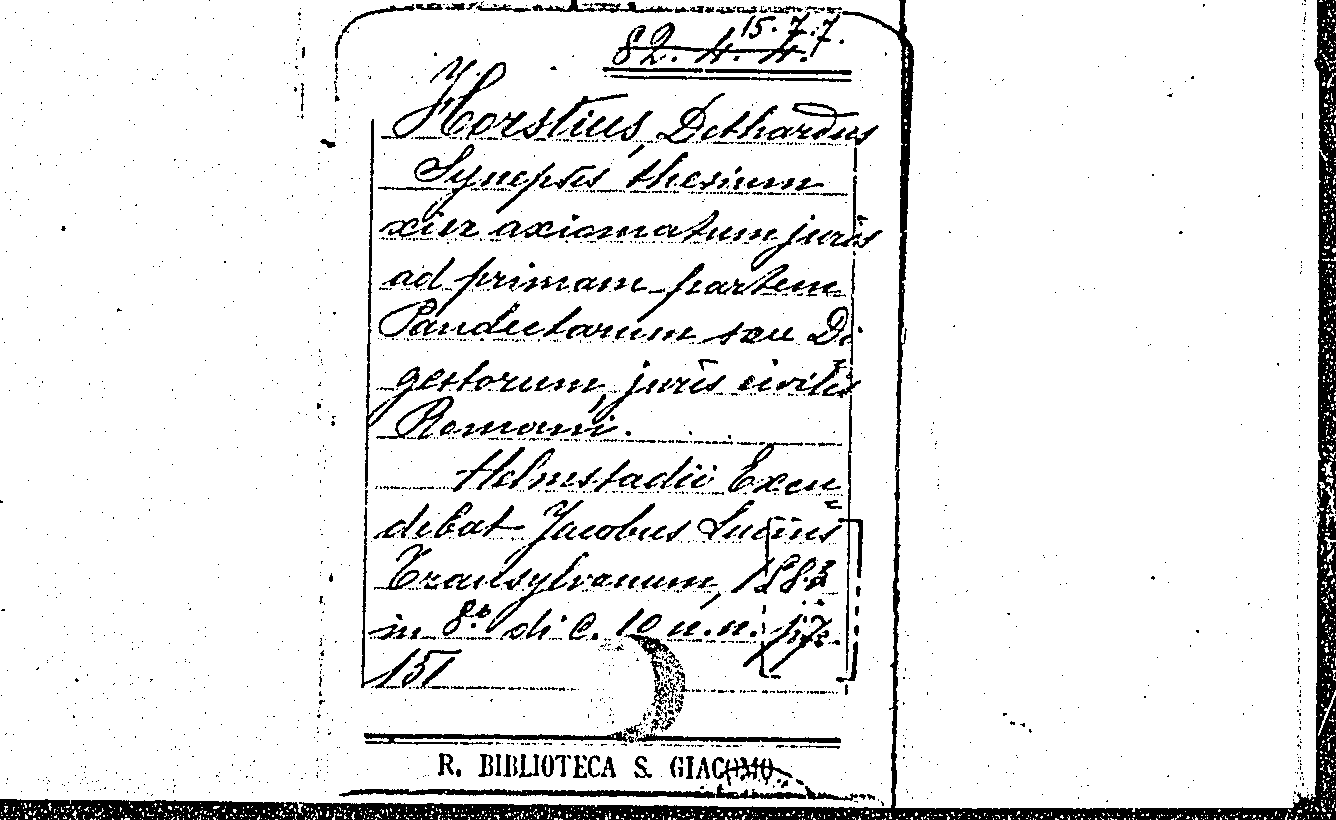 15.7.7.
82.4.4.
Horstius, Dethardus
Synopsis thesium
axiomatum juris
ad primam partem
Pandectarum seu Di
gestorum, juris civilis
Romani.
Helmstadii Excu
debat Jacobus Lucius
Transylvanum, 1583
in 8.º di C. 10 n.n. p.
151
R. BIBLIOTECA S. GIACOMO